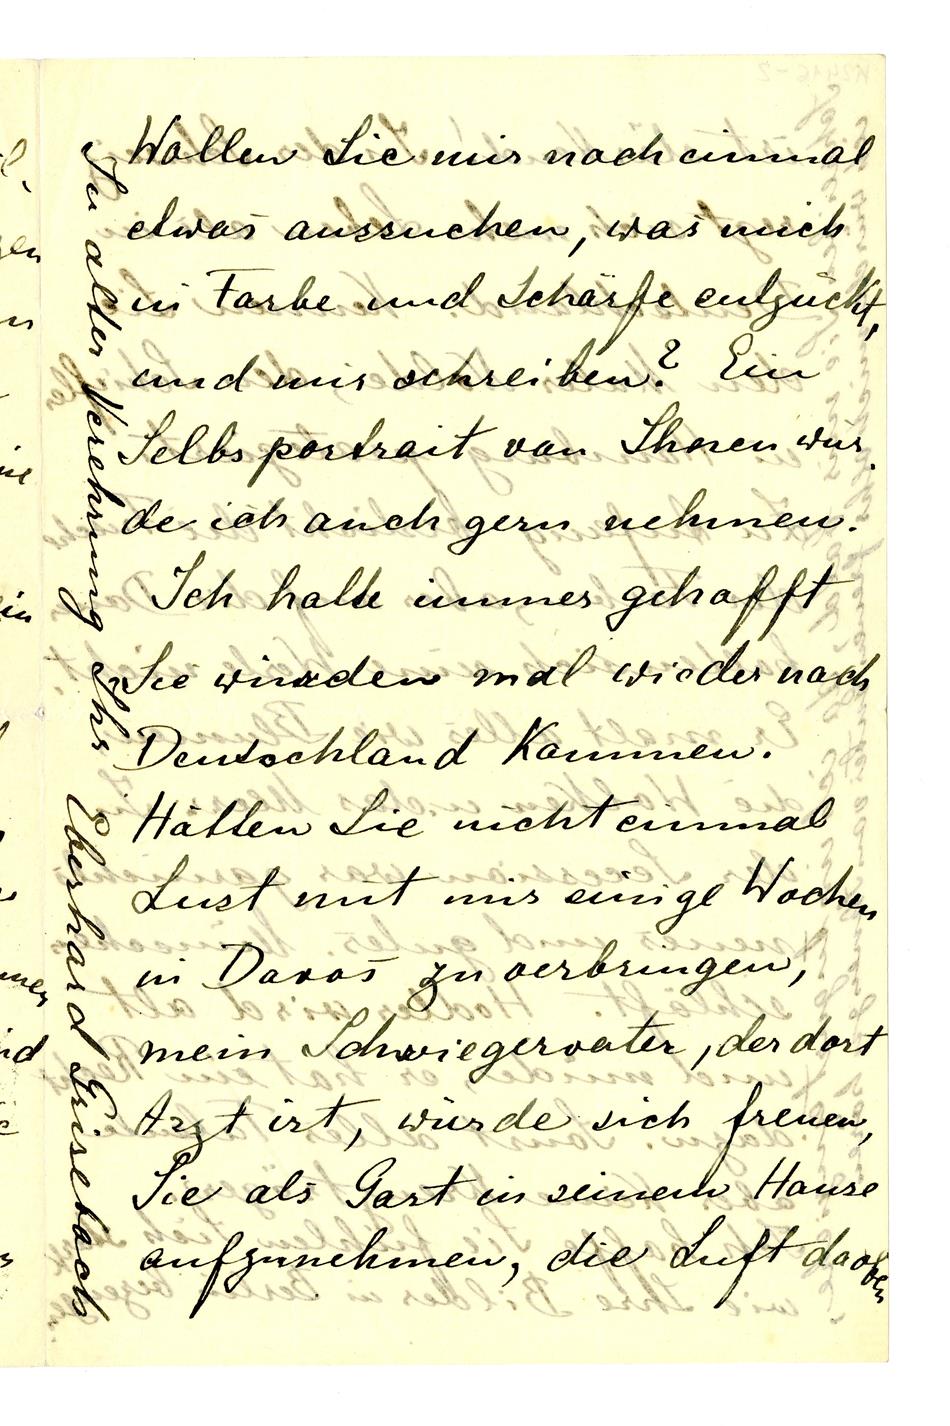 Wollen Sie mir noch einmal
etwas aussuchen, was mich
in Farbe und Schärfe entzückt,
und mir schreiben? Ein
Selbsportrait von Ihnen wür
de ich auch gern nehmen.
Ich hatte immer gehofft
Sie würden mal wieder nach
Deutschland kommen.
Hätten Sie nicht einmal
Lust mit mir einige Wochen
in Davos zu verbringen,
mein Schwiegervater, der dort
Arzt ist, würde sich freuen,
Sie als Gast in seinem Hause
aufzunehmen, die Luft da oben
In alter Verehrung Ihr Eberhard Grisebach